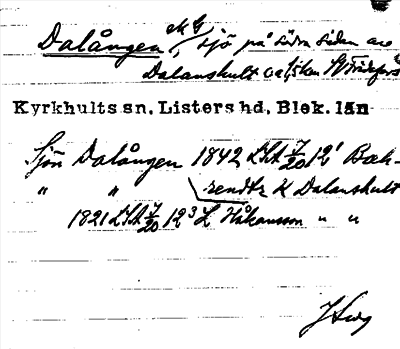 Dalången, sjö på södra sidan av
Dalanshult
Kyrkhults sn, Listers hd, Blek. län
Sjön Dalången 1842 LSA 7/20 12¹ Bæk-
" " rendtz K Dalanshult
1821 LSA 7/20 12³ L Håkansson " "